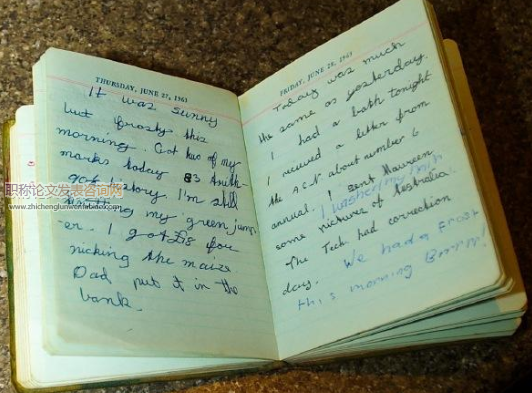 THURSDAY, JUNE 27, 1963
It was sunny
but frosty this
morning. Got two of my
marks today 83 Arith
got history. I'm still
knitting my green jump-
er. I got £8 for
picking the maize
Dad put it in the
bank.
FRIDAY, JUNE 28, 1963
Today was much
the same as yesterday.
I had a bath tonight
I recieved a letter from
the about number 6
annual. I sent Maureen
I washed my hair
some pictures of Australia
The Tech had correction
day. We had a frost
this morning Brrrr!
职称论文发表咨询网
www.zhichenglunwenfabiao.com